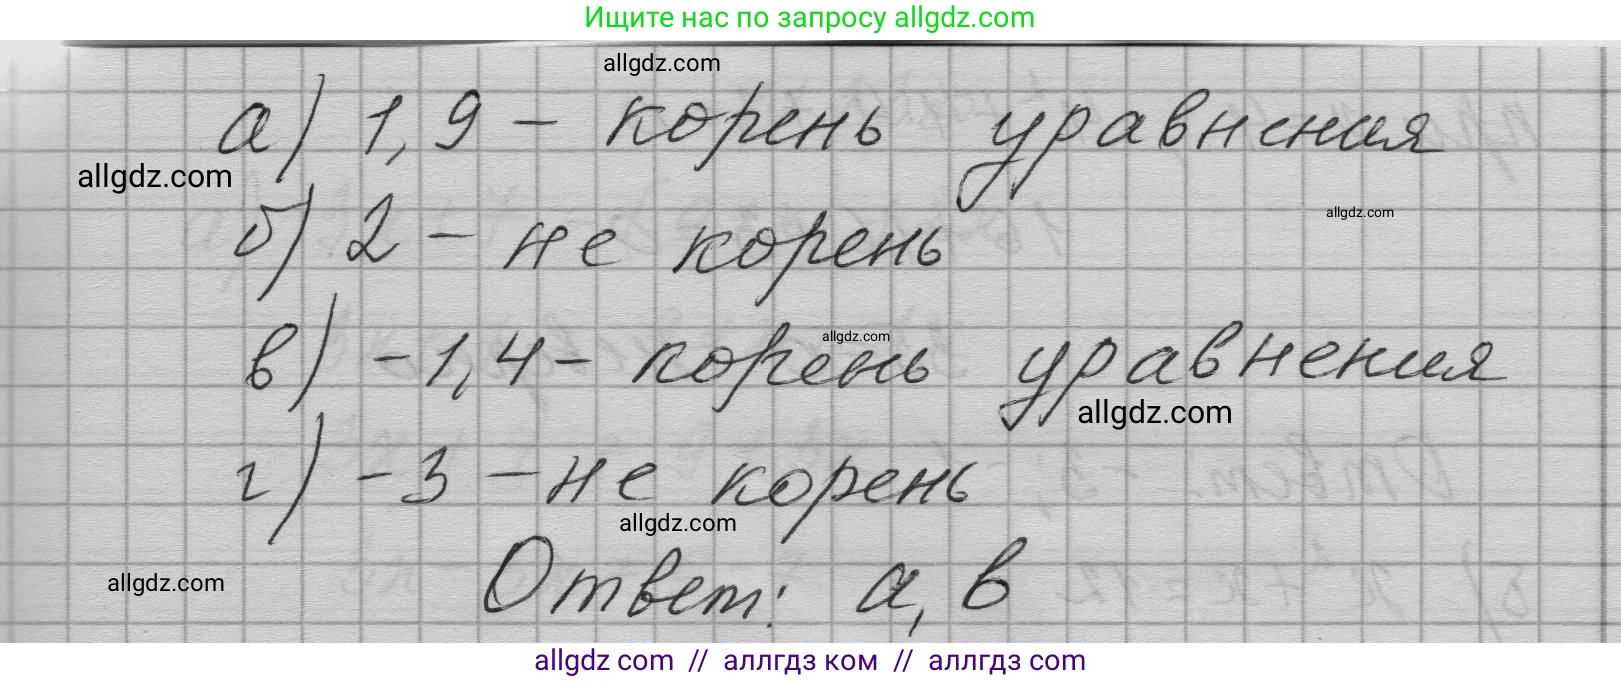 Ищите нас по запросу allgdz.com
allgdz.com
а) 1,9 – корень уравнения
allgdz.com
allgdz.com
б) 2 – не корень
allgdz.com
в) -1,4 – корень уравнения
allgdz.com
г) -3 – не корень
allgdz.com
Ответ: а, в
allgdz.com
allgdz com // аллгдз ком // аллгдз com